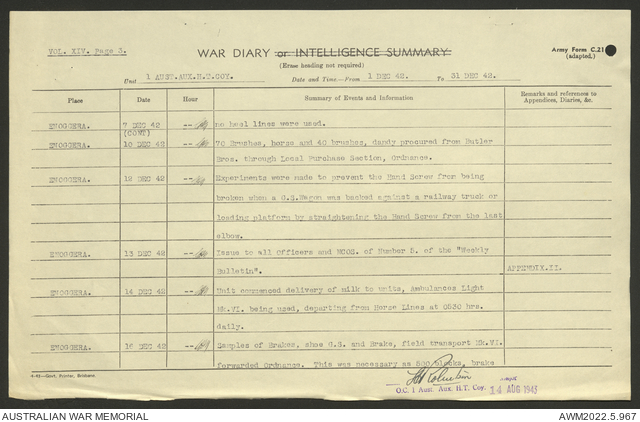 VOL. XIV. Page 3.
WAR DIARY or INTELLIGENCE SUMMARY
Army Form C.21
(adapted.)
(Erase heading not required)
Unit 1 AUST.AUX.H.T.COY. Date and Time—From 1 DEC 42. To 31 DEC 42.
Place Date Hour Summary of Events and Information Remarks and references to Appendices, Diaries, &c.
ENOGGERA. 7 DEC 42 -- no heel lines were used.
(CONT)
ENOGGERA. 10 DEC 42 -- 70 Brushes, horse and 40 brushes, dandy procured from Butler
Bros. through Local Purchase Section, Ordnance.
ENOGGERA. 12 DEC 42 -- Experiments were made to prevent the Hand Screw from being
broken when a G.S.Wagon was backed against a railway truck or
loading platform by straightening the Hand Screw from the last
elbow.
ENOGGERA. 13 DEC 42 -- Issue to all Officers and NCOS. of Number 5. of the "Weekly
Bulletin". APPENDIX.II.
ENOGGERA. 14 DEC 42 -- Unit commenced delivery of milk to units, Ambulances Light
Mk.VI. being used, departing from Horse Lines at 0530 hrs.
daily.
ENOGGERA. 16 DEC 42 -- Samples of Brakes, shoe G.S. and Brake, field transport Mk.VI.
forwarded Ordnance. This was necessary as 500 blocks, brake
Govt. Printer, Brisbane.
O.C. 1 Aust. Aux. H.T. Coy. 14 AUG 1943
AUSTRALIAN WAR MEMORIAL AWM2022.5.967